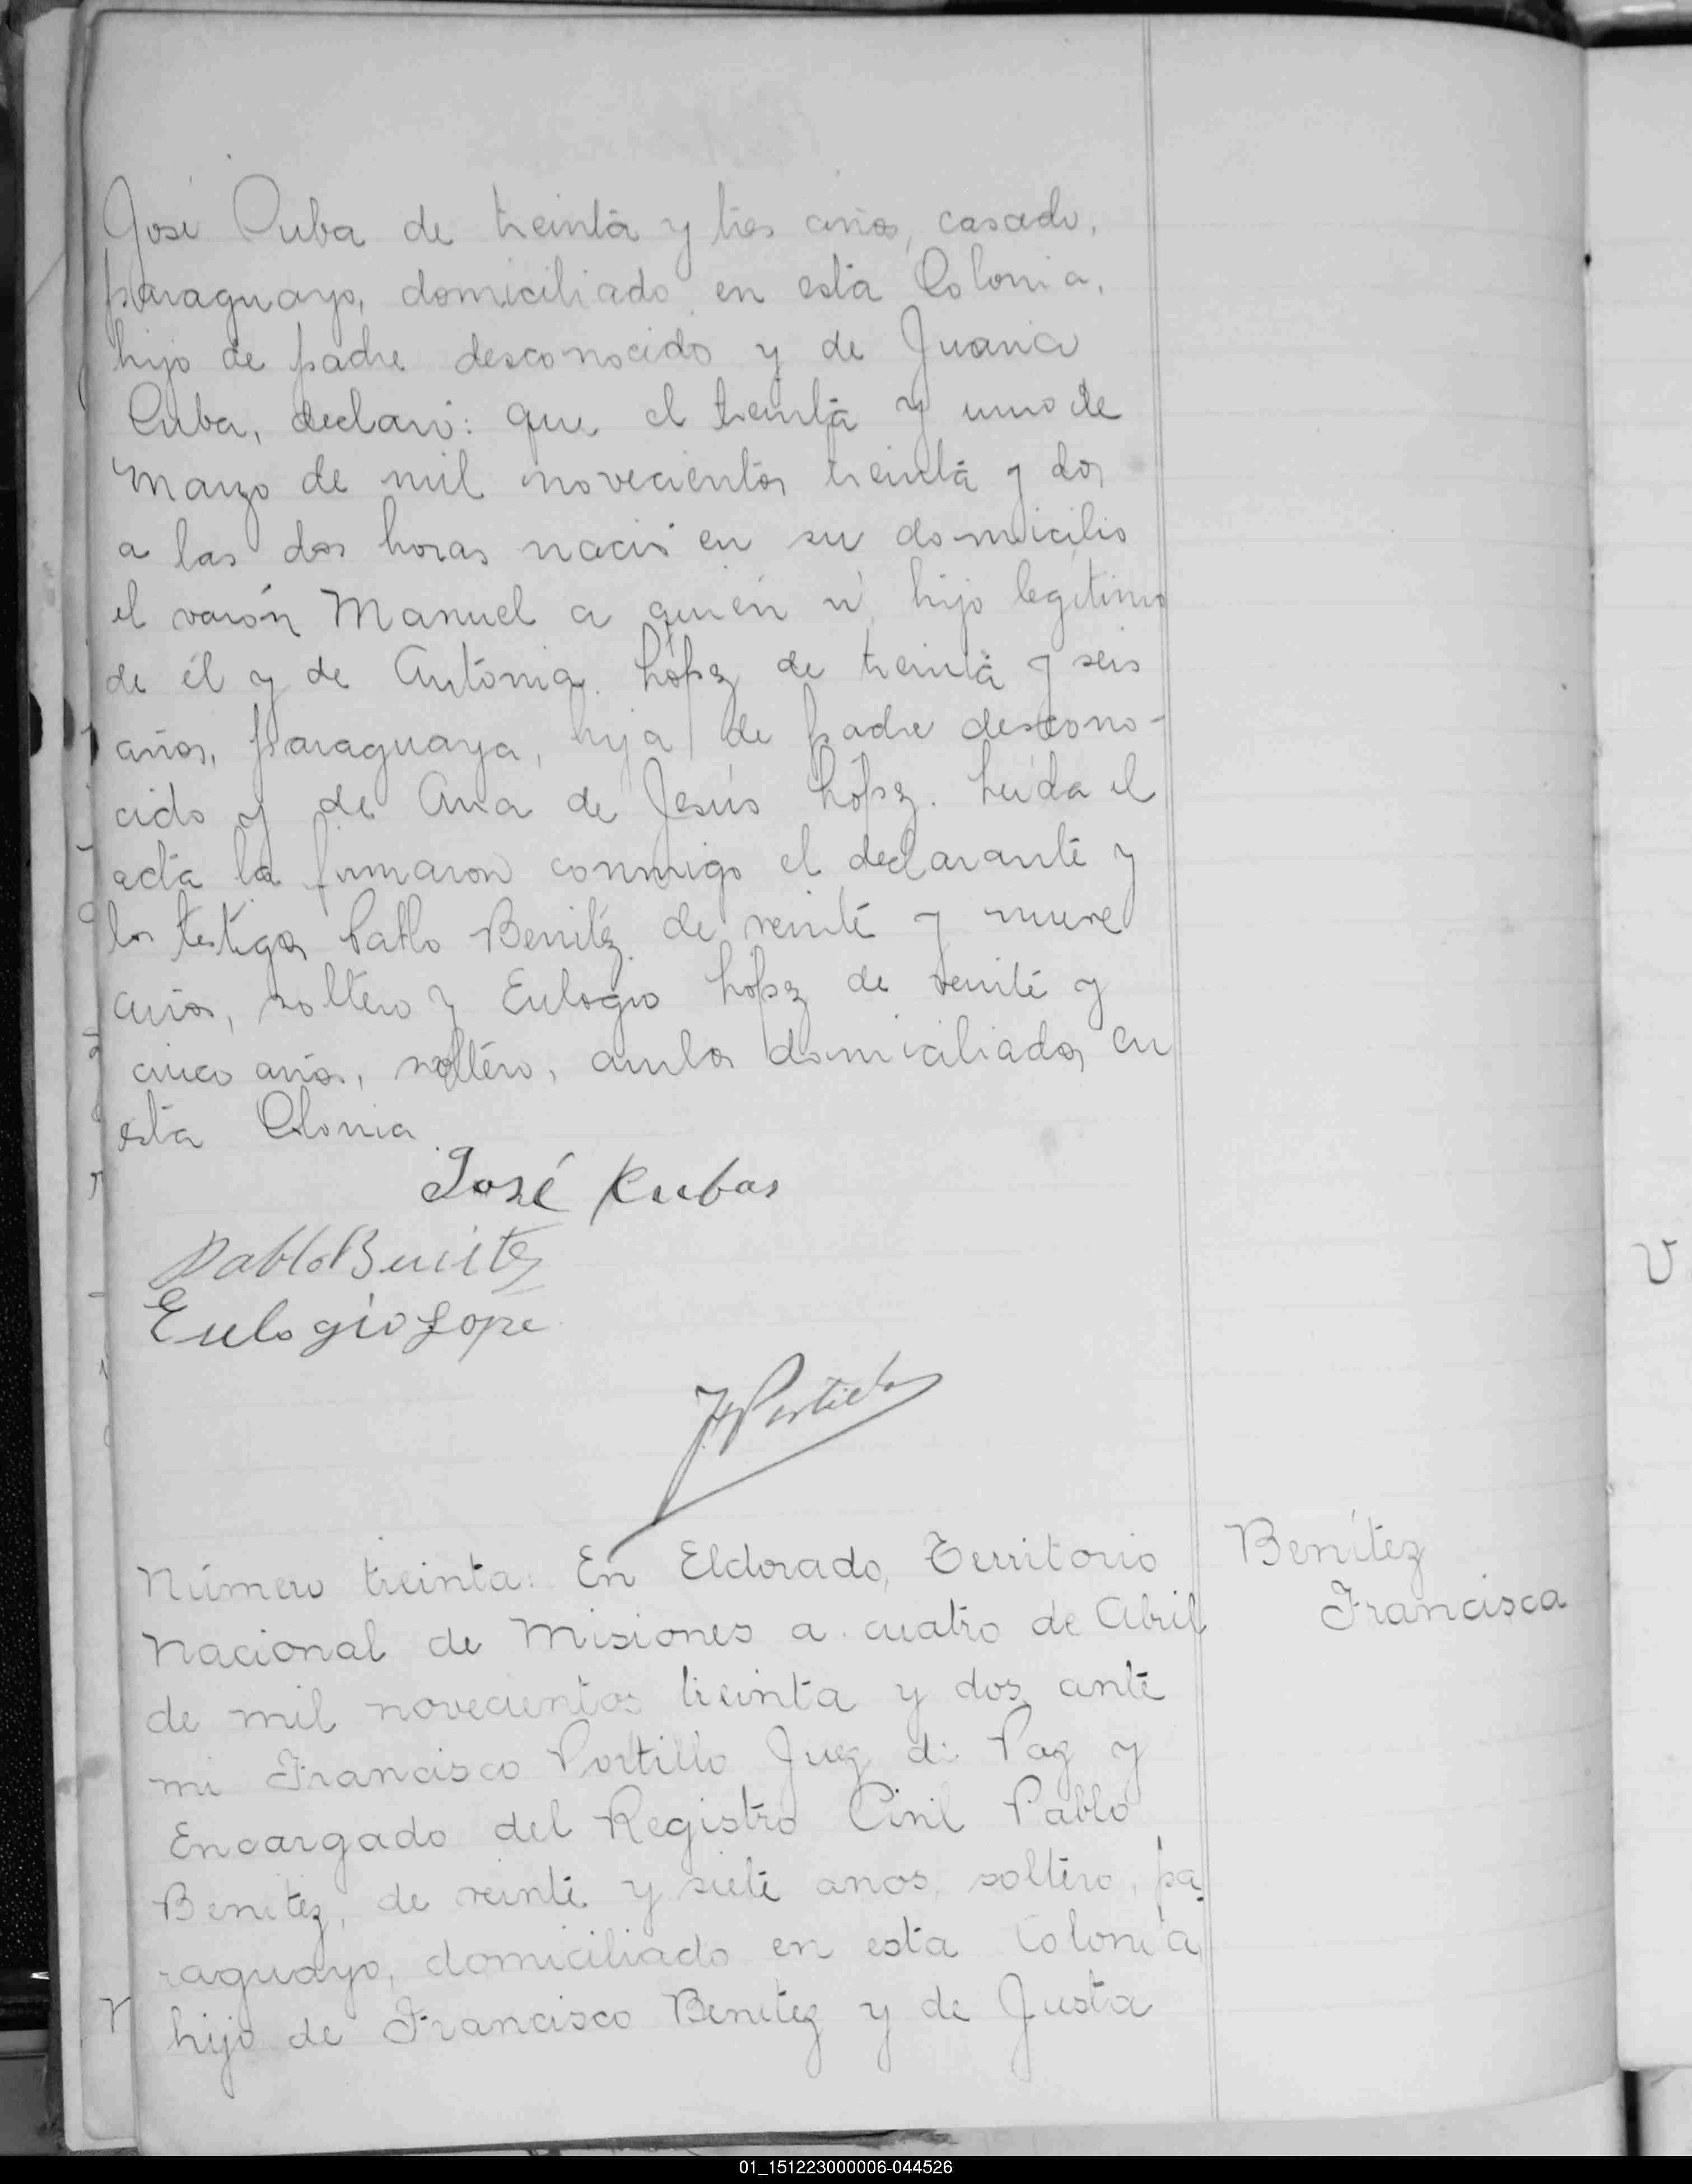 José Cuba de treinta y tres años, casado,
paraguayo, domiciliado en esta Colonia,
hijo de padre desconocido y de Juana
Cuba, declaró: que el treinta y uno de
Marzo de mil novecientos treinta y dos
a las dos horas nació en su domicilio
el varón Manuel a quién ví, hijo legítimo
de él y de Antónia López de treinta y seis
años, paraguaya, hija de padre descono-
cido y de Ana de Jesús López. Leída el
acta la firmaron conmigo el declarante y
los testigos Pablo Benítez de veinte y nueve
años, soltero y Eulogio López de veinte y
cinco años, soltero, ambos domiciliados en
esta Colonia.
José Kubas
Pablo Benitez
Eulogio Lope
F Portillo
Número treinta: En Eldorado, Territorio
Nacional de Misiones a cuatro de Abril
de mil novecientos treinta y dos ante
mi Francisco Portillo Juez de Paz y
Encargado del Registro Civil Pablo
Benitez, de veinte y siete anos, soltero, pa
raguayo, domiciliado en esta Colonia,
hijo de Francisco Benitez y de Justa
Benítez
Francisca
V
01_151223000006-044526